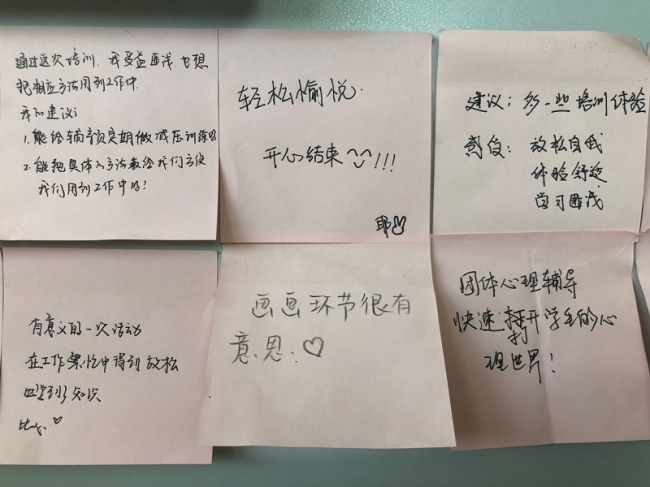 通过这次培训,我受益匪浅,也想
把相应方法用到工作中.
我的建议:
1.能给辅导员定期做减压训练
2.能把具体的方法教给我们,方便
我们用到工作中的!
轻松愉悦.
开心结束!!!
耶
建议:多一些培训体验
放松自我
体验舒适
学习匪浅
有意义的一次活动
在工作繁忙中得到放松
比心
画画环节很有
意思:♡
团体心理辅导
快速打开学生的心
理世界!